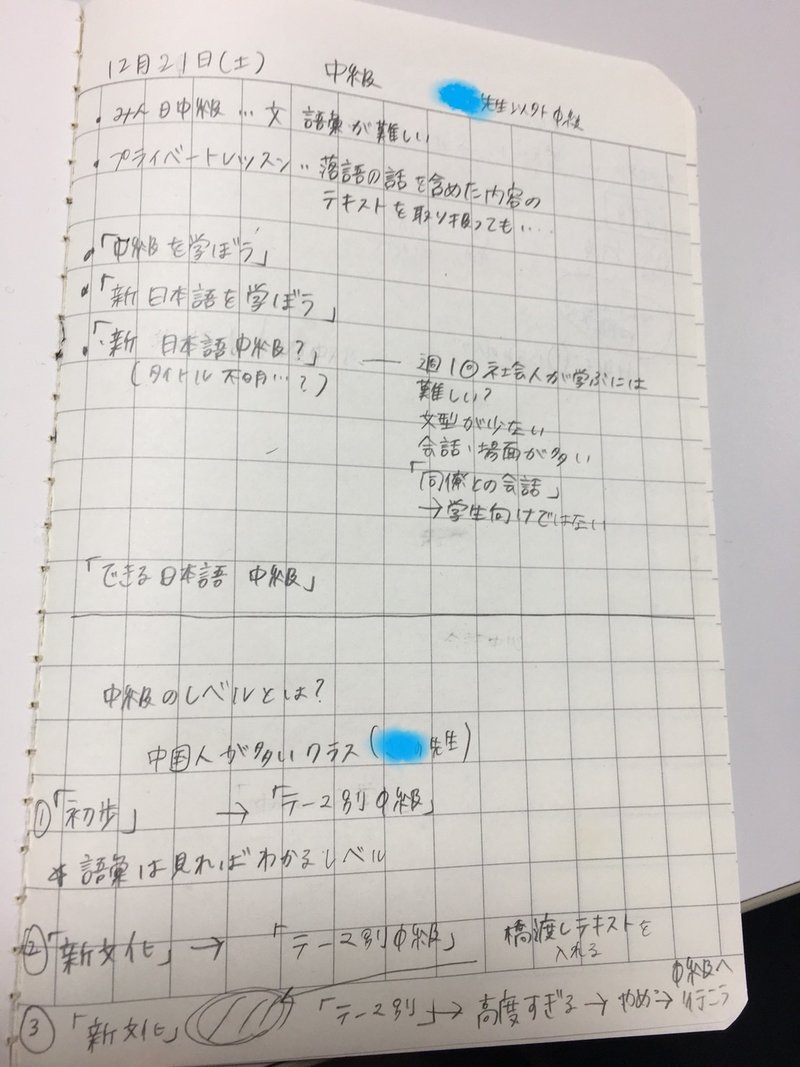 12月21日(土) 中級
先生 中級
・みん日中級…文 語彙が難しい
・プライベートレッスン…落語の話を含めた内容の
テキストを取り扱っても....
・「中級を学ぼう」
・「新日本語を学ぼう」
・「新 日本語中級?」
(タイトル不明…?)
― 週1回社会人が学ぶには
難しい?
文型が少ない
会話・場面が多い
「同僚との会話」
→学生向けではない
「できる日本語 中級」
中級のレベルとは?
中国人が多いクラス(先生)
①「初歩」 → 「テーマ別中級」
* 語彙は見ればわかるレベル
②「新文化」 → 「テーマ別中級」 橋渡しテキストを
入れる
③「新文化」 「テーマ別」→高度すぎる→やめ→中級へ
行こう